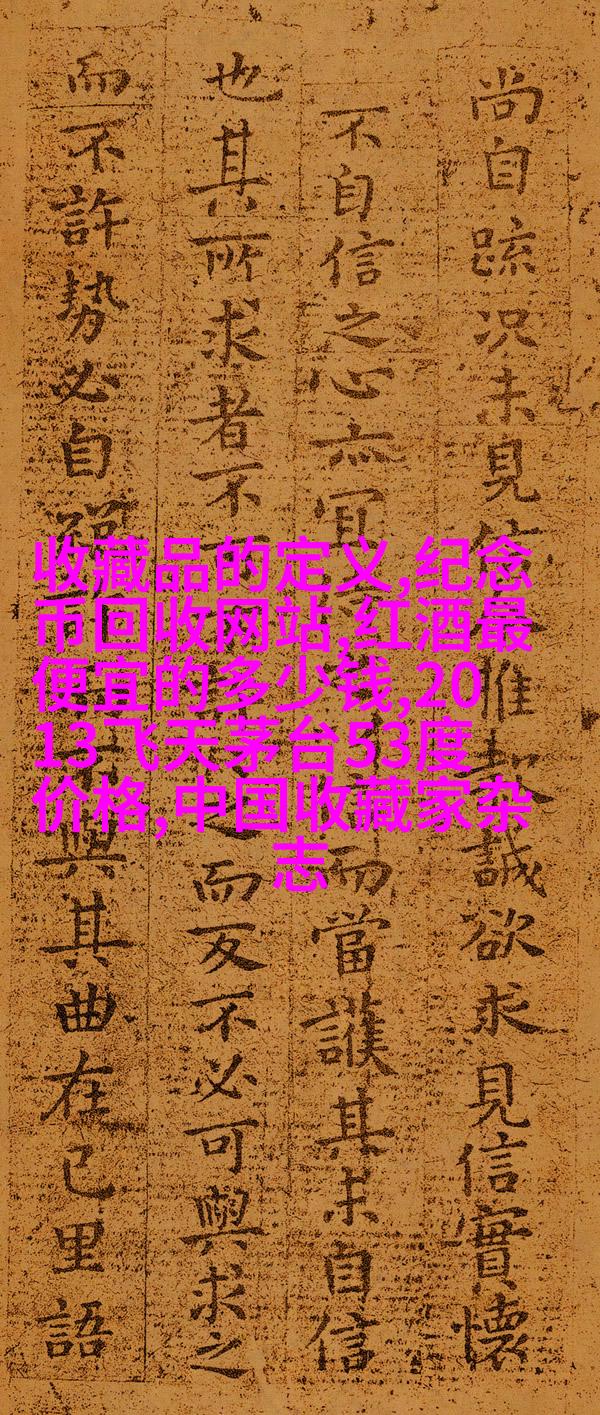 尚自疏况未見信惟誠欲求見信實懷
不自信之心亦宜而當護其未自信
也其所求者不可之而反不必可與求之
而不許勢必自與其曲在己里語
收藏品的定义,纪念
币回收网站,红酒最
便宜的多少钱,20
13飞天茅台53度
价格,中国收藏家杂
志